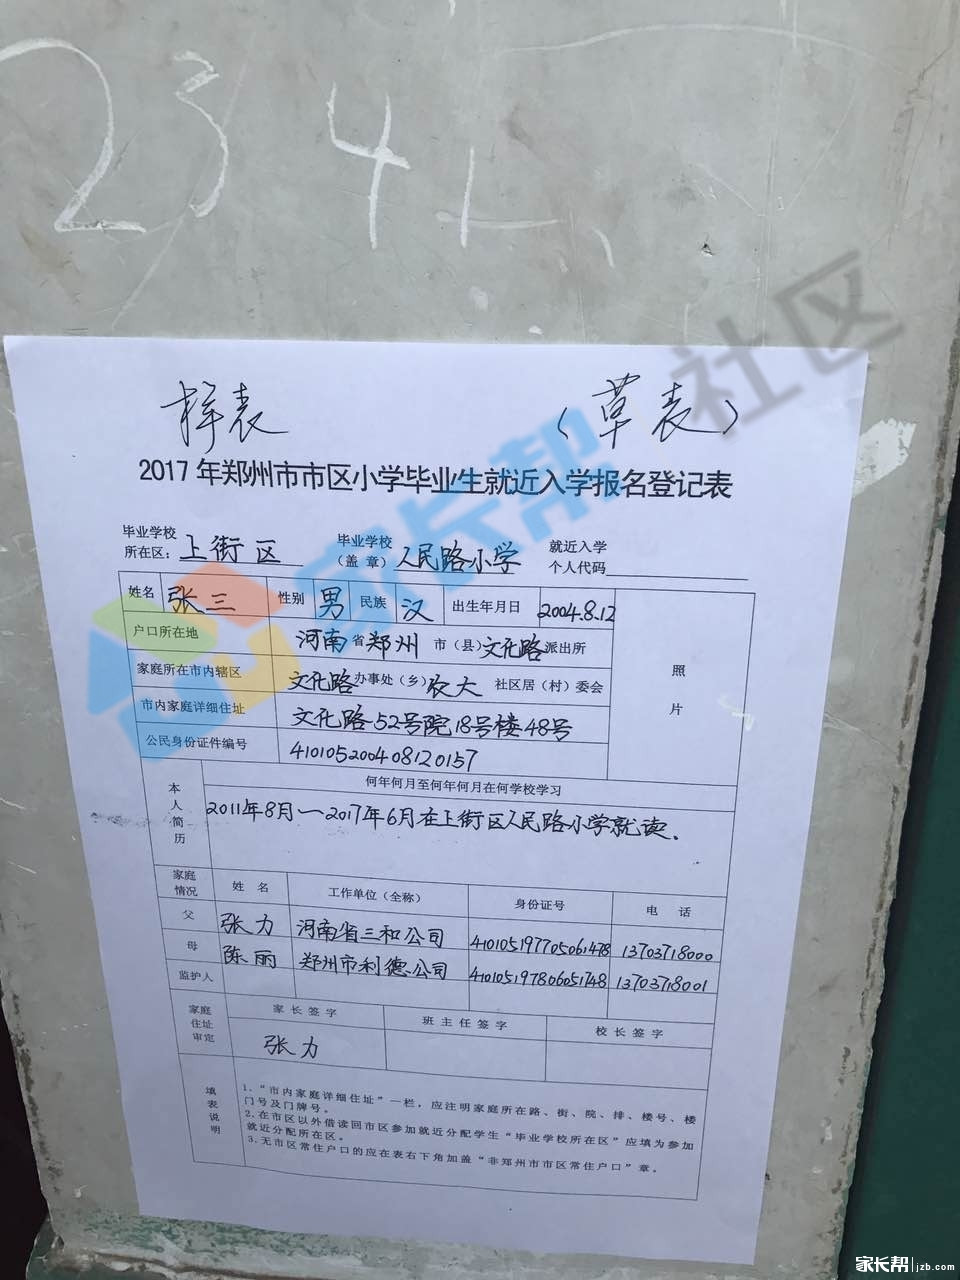 2341
社区
样表 (草表)
家长帮
2017年郑州市市区小学毕业生就近入学报名登记表
毕业学校所在区：上街区 毕业学校（盖章）人民路小学 就近入学个人代码
姓名 张三 性别 男 民族 汉 出生年月日 2004.8.12
户口所在地 河南省郑州市（县）文化路派出所
照片
家庭所在市内辖区 文化路办事处（乡）农大社区居（村）委会
市内家庭详细住址 文化路52号院18号楼48号
公民身份证件编号 410105200408120157
本人简历 何年何月至何年何月在何学校学习
2011年8月—2017年6月在上街区人民路小学就读.
家庭情况 姓名 工作单位（全称） 身份证号 电话
父 张力 河南省三和公司 410105197705061478 13703718000
母 陈丽 郑州市利德公司 410105197806051748 13703718001
监护人
家庭住址审定 家长签字 班主任签字 校长签字
张力
填表说明
1.“市内家庭详细住址”一栏，应注明家庭所在路、街、院、排、楼号、楼
门号及门牌号。
2.在市区以外借读回市区参加就近分配学生“毕业学校所在区”应填为参加
就近分配所在区。
3.无市区常住户口的应在表右下角加盖“非郑州市市区常住户口”章。
家长帮 jzb.com